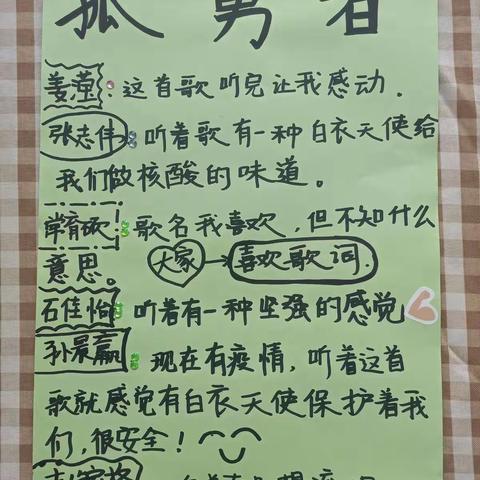 孤勇者
姜莹：这首歌听完让我感动.
张志伟：听着歌有一种白衣天使给
我们做核酸的味道。
常育硕！：歌名我喜欢，但不知什么
意思。 大家→喜欢歌词.
石佳怡：听着有一种坚强的感觉
孙晨赢：现在有疫情，听着这首
歌就感觉有白衣天使保护着我
们，很安全！